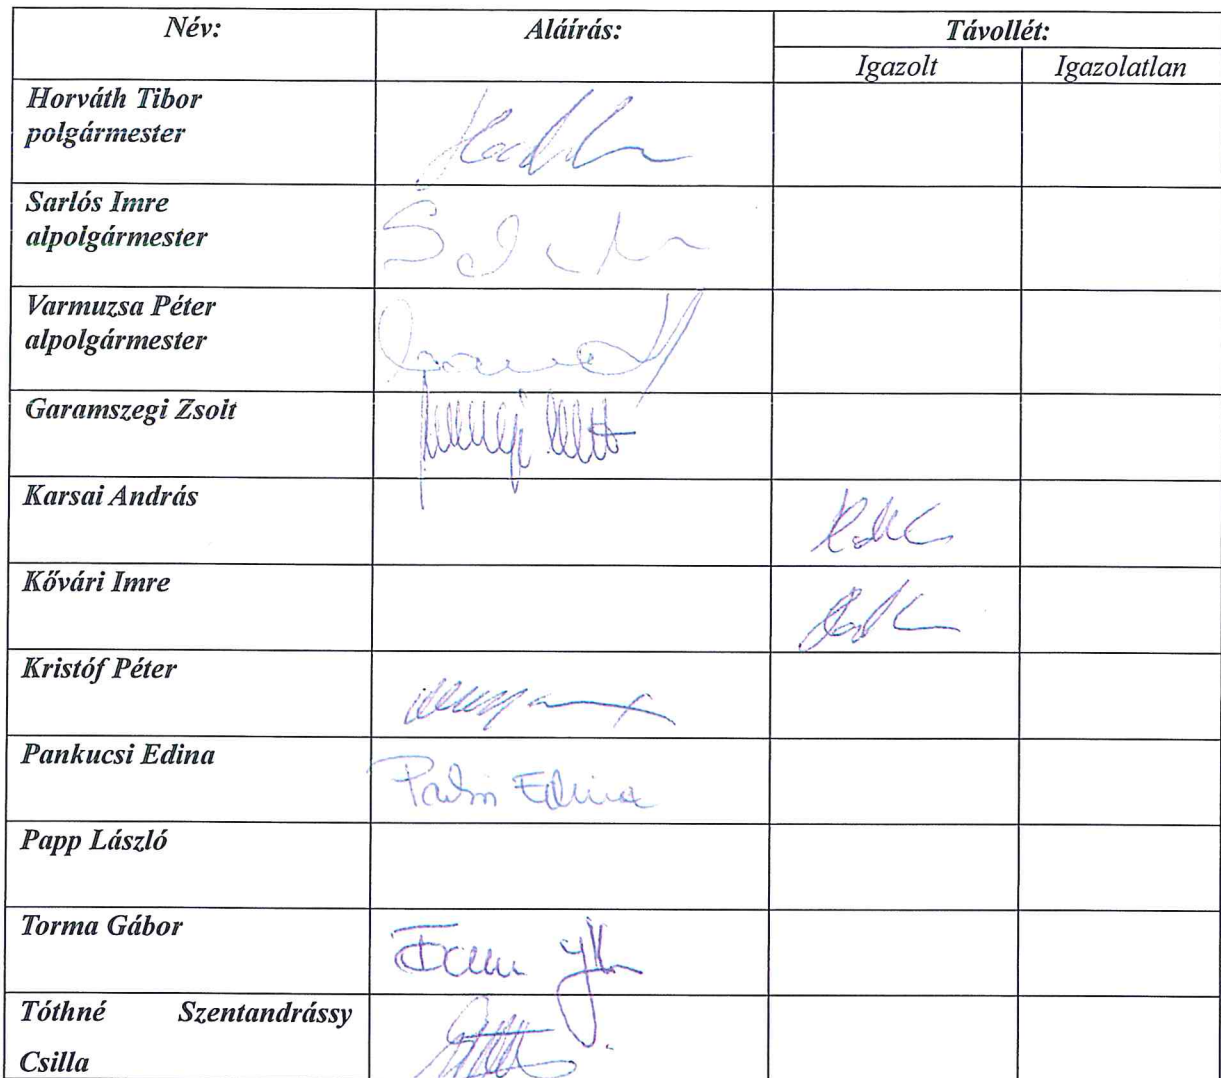 Név:
Aláírás:
Távollét:
Igazolt
Igazolatlan
Horváth Tibor
polgármester
Sarlós Imre
alpolgármester
Varmuzsa Péter
alpolgármester
Garamszegi Zsolt
Karsai András
Kővári Imre
Kristóf Péter
Pankucsi Edina
Edina
Papp László
Torma Gábor
Tóthné Szentandrássy
Csilla